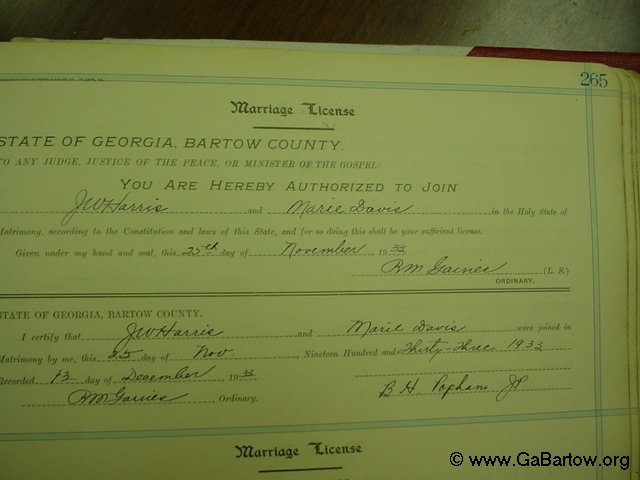 265
Marriage License
STATE OF GEORGIA, BARTOW COUNTY.
TO ANY JUDGE, JUSTICE OF THE PEACE, OR MINISTER OF THE GOSPEL:
YOU ARE HEREBY AUTHORIZED TO JOIN
JW Harris and Marie Davis in the Holy State of
Matrimony, according to the Constitution and laws of this State, and for so doing this shall be your sufficient license.
Given under my hand and seal, this 25th day of November, 1933
RM Gaines (L. S.)
ORDINARY.
STATE OF GEORGIA, BARTOW COUNTY.
I certify that JW Harris and Marie Davis were joined in
Matrimony by me, this 25 day of Nov, Nineteen Hundred and Thirty Three 1933
Recorded 13 day of December, 1933
RM Gaines, Ordinary. B H. Popham JP
Marriage License
© www.GaBartow.org